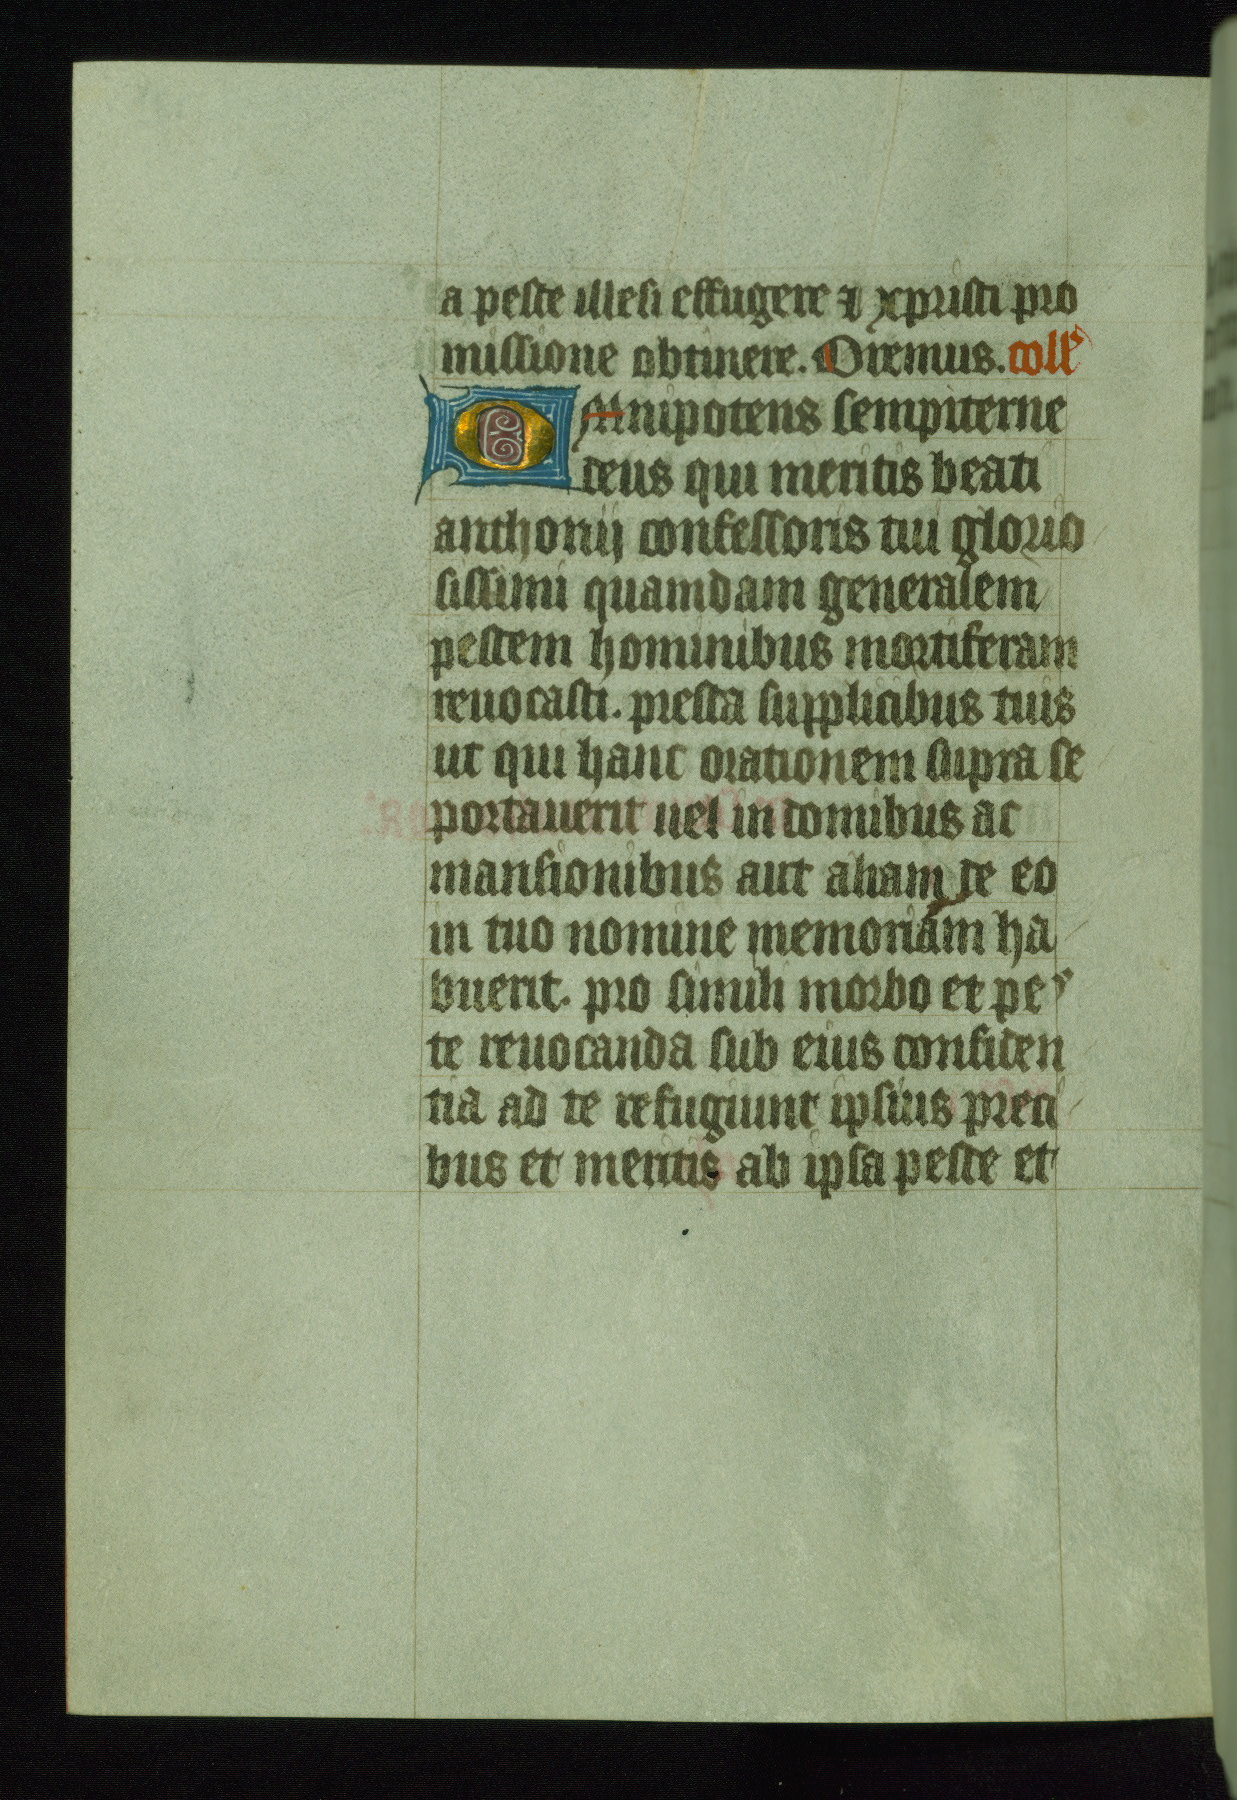 a peste illesi effugere ⁊ xpristi pro
missione obtinere. Oremus. coll'
OMnipotens sempiterne
deus qui meritis beati
anthonij confessoris tui glorio
sissimi quamdam generalem
pestem hominibus mortiferam
reuocasti. presta supplicibus tuis
ut qui hanc orationem supra se
portauerit uel in domibus ac
mansionibus aut aliam de eo
in tuo nomine memoriam ha
buerit. pro simili morbo et pes
te reuocanda sub eius confiden
tia ad te refugiunt ipsius preci
bus et meritis ab ipsa peste et